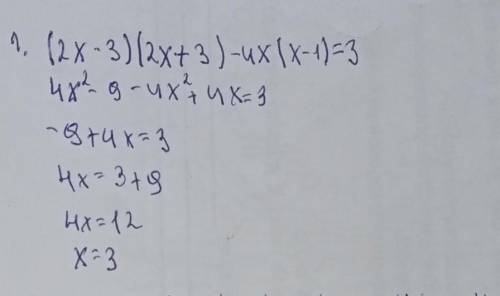 1. (2x-3)(2x+3)-4x(x-1)=3
4x²-9-4x²+4x=3
-9+4x=3
4x=3+9
4x=12
x=3